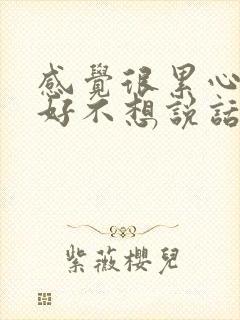 感覺很累心
好不想說話
紫薇櫻兒